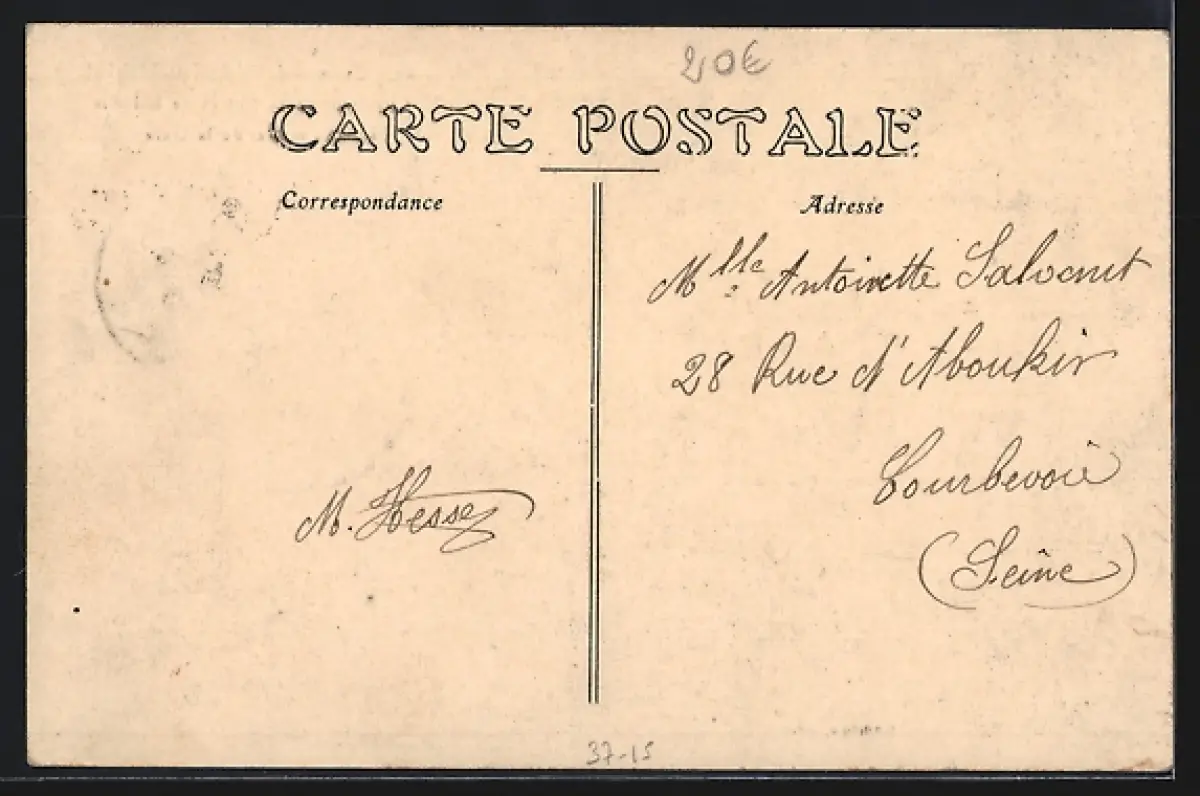 20€
CARTE POSTALE
Correspondance
Adresse
Mlle Antoinette
28 Rue d'Aboukir
Courbevoie
(Seine)
M. Hesse
37-15